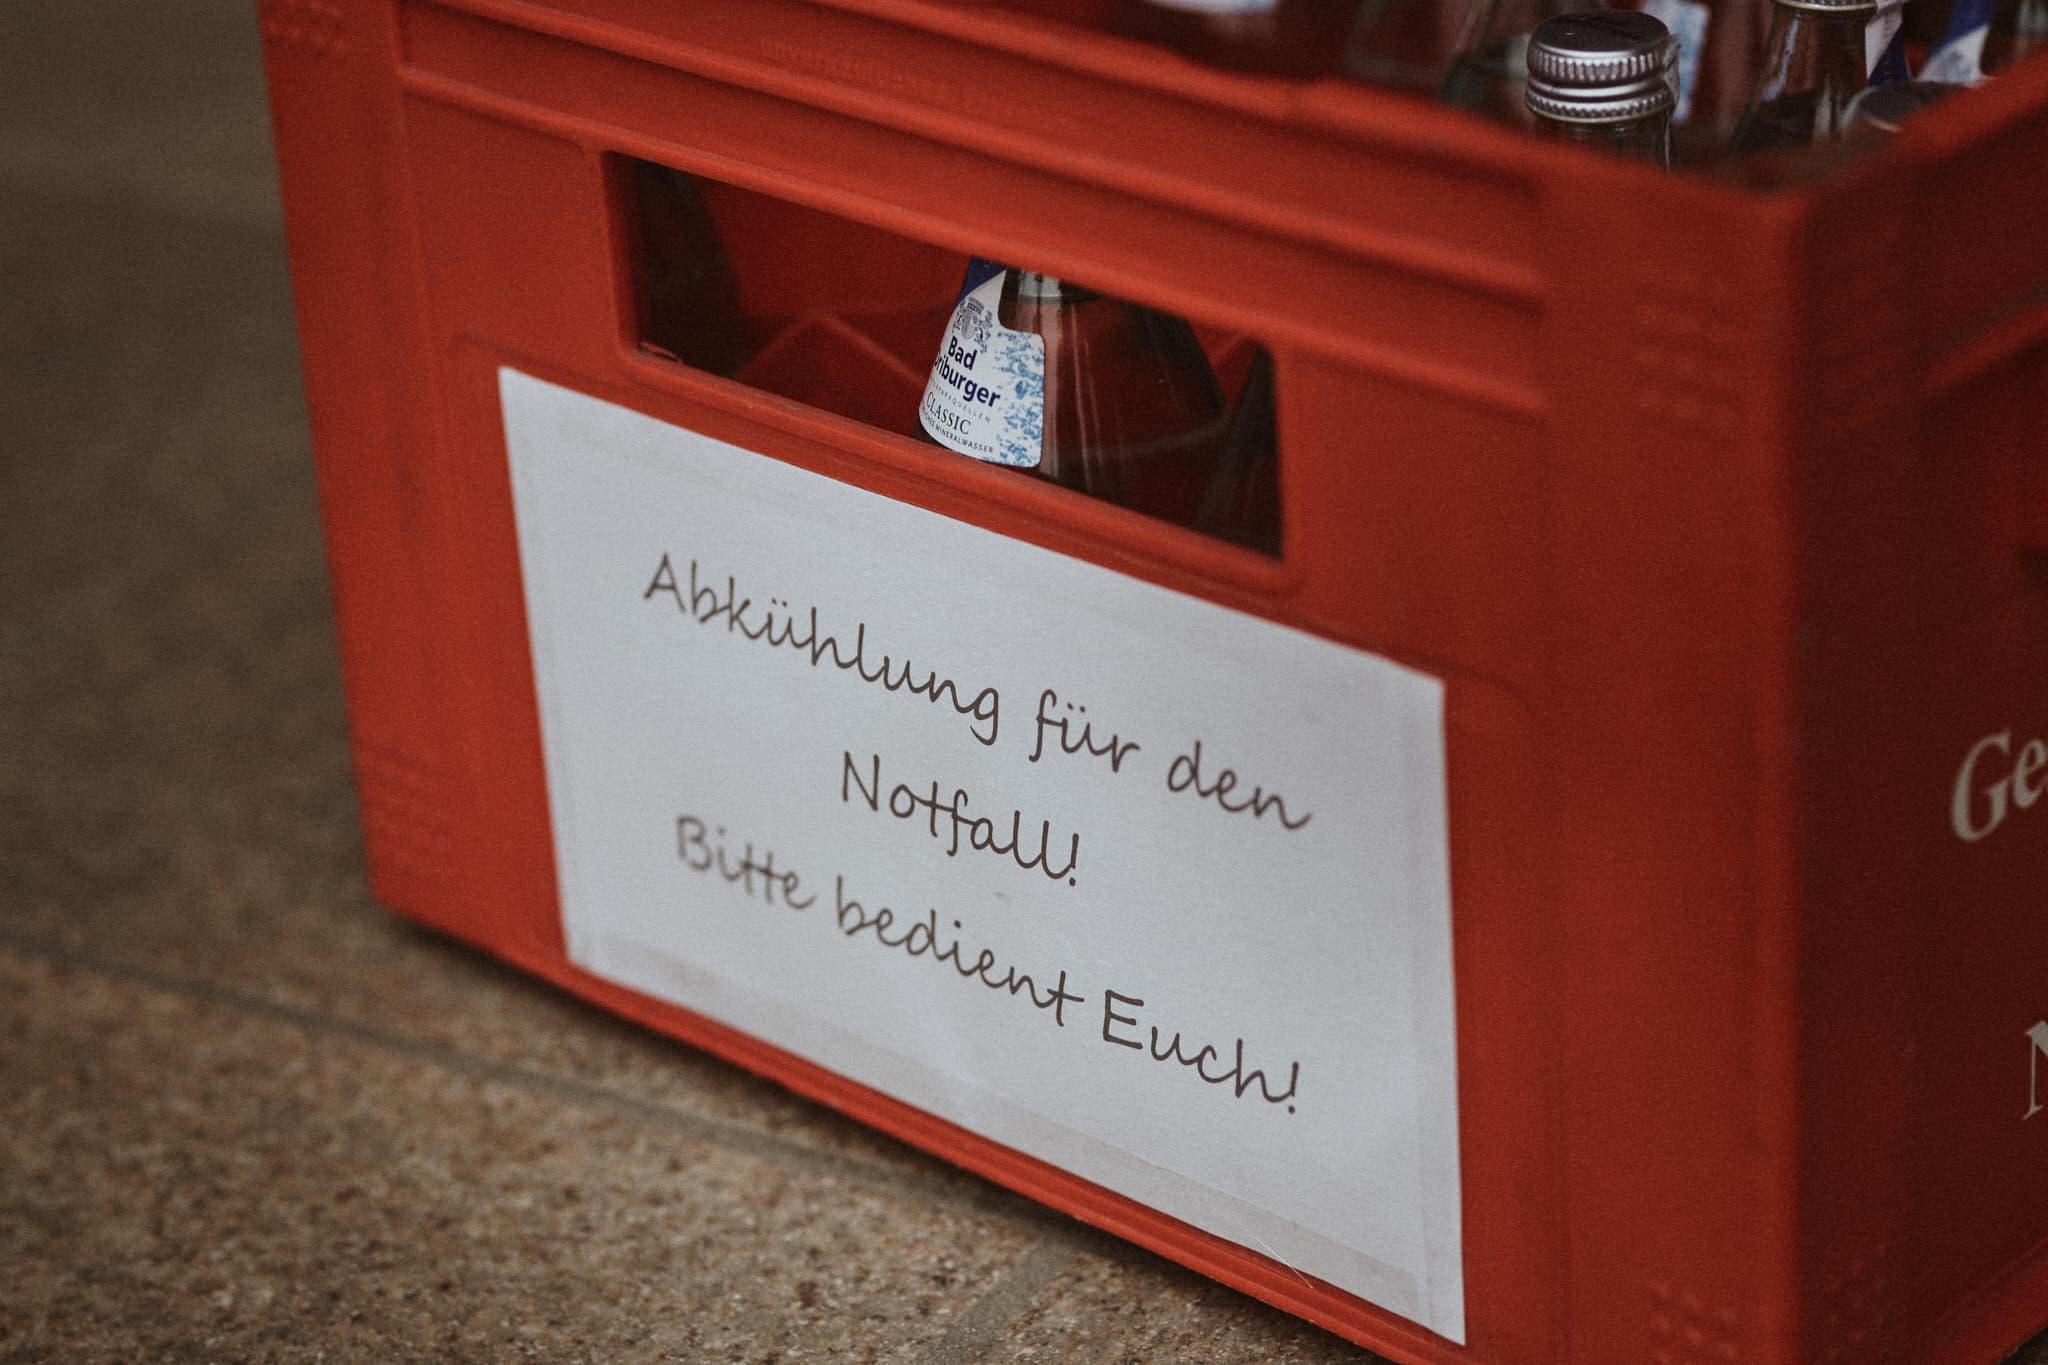 Bad
CLASSIC
MINERALWASSER
Abkühlung für den
Notfall!
Bitte bedient Euch!